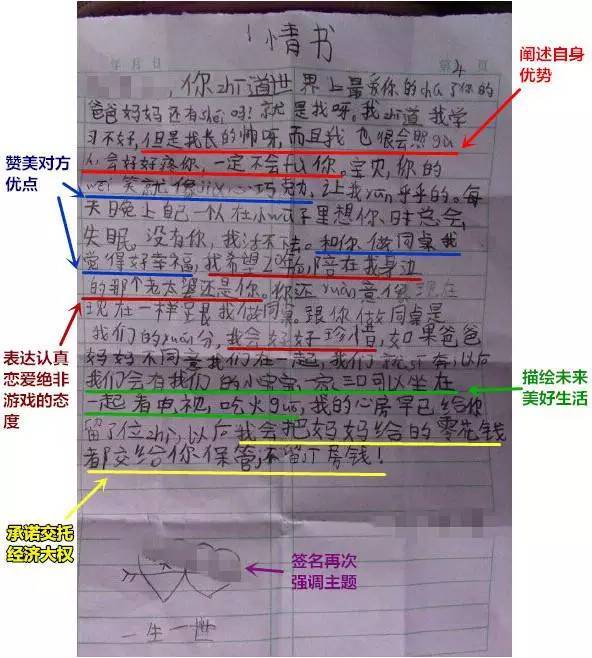 情书
年 月 日
第 4 页
,你zhi道世界上最爱你的chu了你的
爸爸妈妈还有shei吗!就是我呀。我zhi道我学
习不好,但是我长的帅呀,而且我也很会照gu
人会好好疼你,一定不会fu你。宝贝,你的
wei笑就像巧克力,让我ruan乎乎的。每
天晚上自己一个人在小wu子里想你时总会
失眠。没有你,我活不下去。和你做同桌我
觉得好幸福,我希望陪在我身边
的那个老太婆还是你。你还yuan意像现在
现在一样跟我做同桌。跟你做同桌是
我们的yuan分,我会好好珍惜,如果爸爸
妈妈不同意我们在一起,我们就私奔,以后
我们会有我们的小宝宝,一家三口可以坐在
一起看电视,吃火guo,我的心房早已给你
留了位zhi,以后我会把妈妈给的零花钱
都交给你保管,不留厂房钱!
一生一世
阐述自身
优势
赞美对方
优点
表达认真
恋爱绝非
游戏的态
度
描绘未来
美好生活
承诺交托
经济大权
签名再次
强调主题